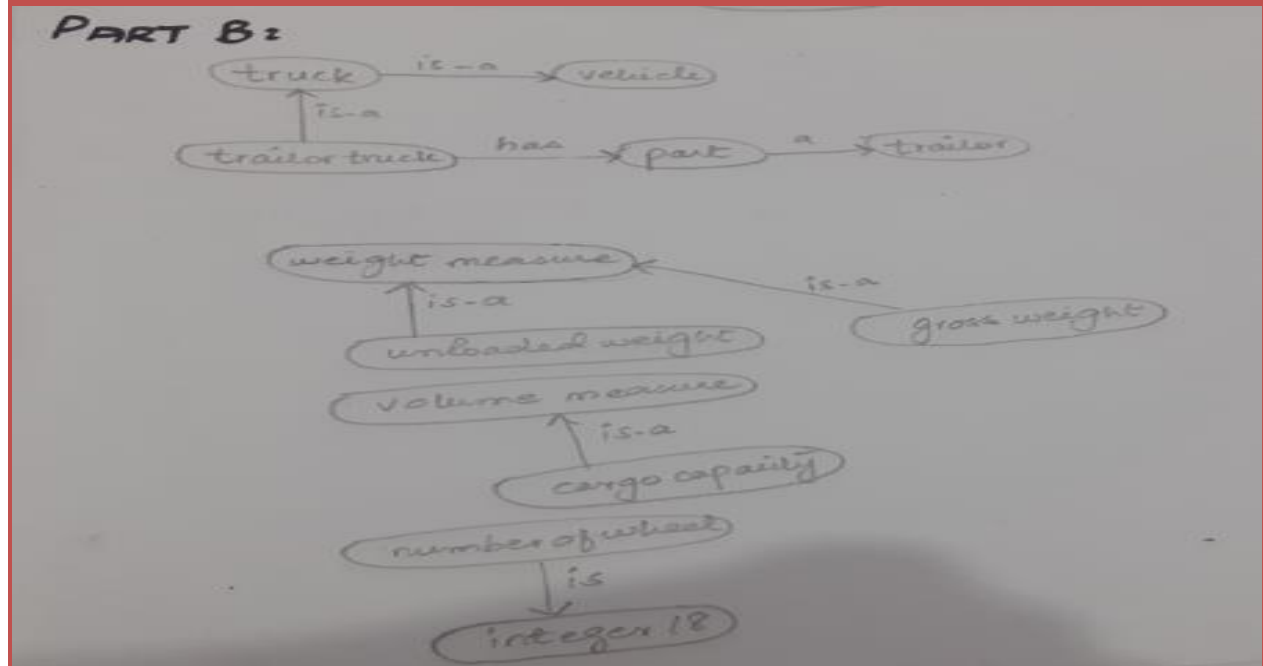 PART B:
truck is-a vehicle
is-a
trailor truck has part a trailor
weight measure
is-a
is-a
gross weight
unloaded weight
volume measure
is-a
cargo capacity
number of wheel
is
integer 18